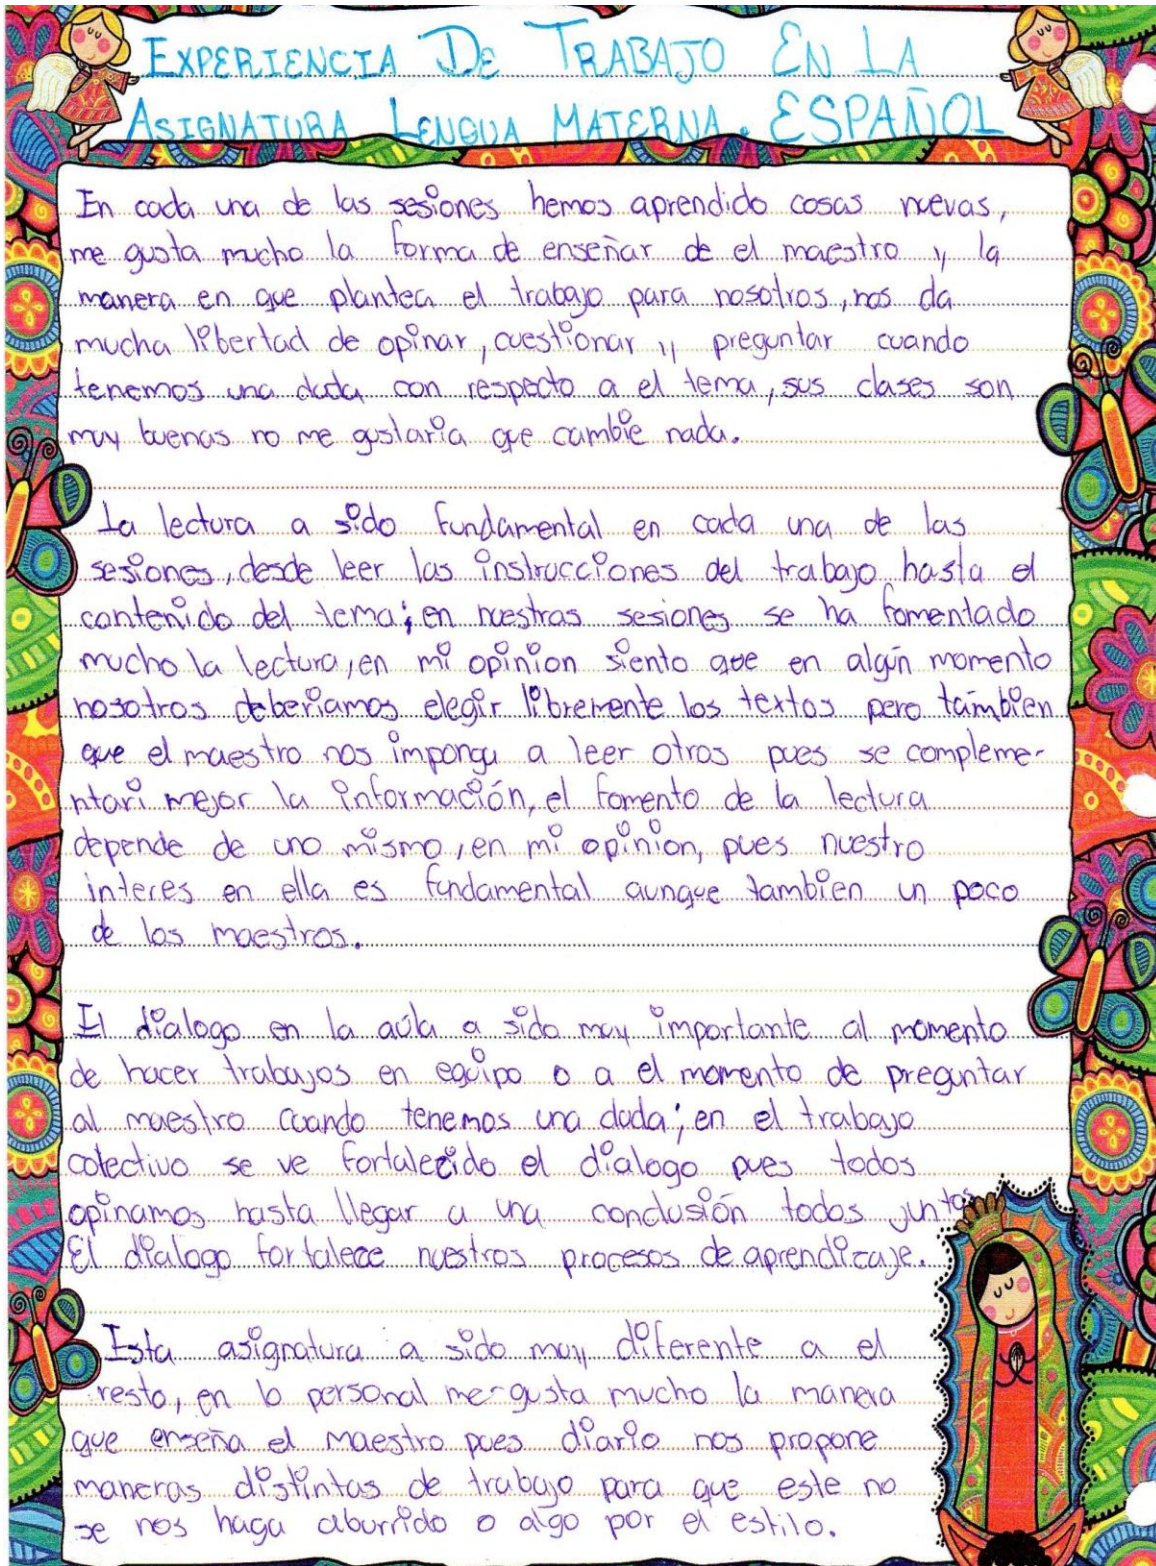 EXPERIENCIA DE TRABAJO EN LA
ASIGNATURA LENGUA MATERNA. ESPAÑOL
En cada una de las sesiones hemos aprendido cosas nuevas,
me gusta mucho la forma de enseñar de el maestro y la
manera en que plantea el trabajo para nosotros, nos da
mucha libertad de opinar, cuestionar y preguntar cuando
tenemos una duda con respecto a el tema, sus clases son
muy buenas no me gustaria que cambie nada.
La lectura a sido fundamental en cada una de las
sesiones, desde leer las instrucciones del trabajo hasta el
contenido del tema; en nuestras sesiones se ha fomentado
mucho la lectura, en mi opinion siento que en algún momento
nosotros deberiamos elegir libremente los textos pero tambien
que el maestro nos imponga a leer otros pues se compleme-
ntari mejor la información, el fomento de la lectura
depende de uno mismo, en mi opinion, pues nuestro
interes en ella es fundamental aunque tambien un poco
de los maestros.
El dialogo en la aúla a sido muy importante al momento
de hacer trabajos en equipo o a el momento de preguntar
al maestro cuando tenemos una duda; en el trabajo
colectivo se ve fortalecido el dialogo pues todos
opinamos hasta llegar a una conclusión todos juntos
El dialogo fortalece nuestros procesos de aprendizaje.
Esta asignatura a sido muy diferente a el
resto, en lo personal me gusta mucho la manera
que enseña el maestro pues diario nos propone
maneras distintas de trabajo para que este no
se nos haga aburrido o algo por el estilo.